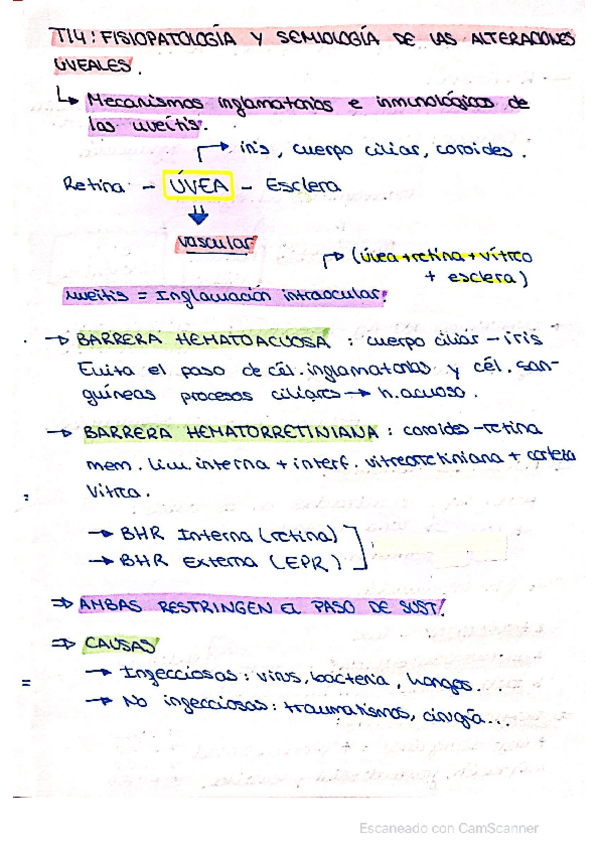 T14: FISIOPATOLOGÍA Y SEMIOLOGÍA DE LAS ALTERACIONES
ÚVEALES.
↳ Mecanismos inflamatorios e inmunológicos de
las uveítis.
→ iris, cuerpo ciliar, coroides.
Retina - ÚVEA - Esclera
vascular
→ (úvea+retina+vítreo
+ esclera)
uveitis = Inflamación intraocular!
→ BARRERA HEMATOACUOSA : cuerpo ciliar - iris
Evita el paso de cél. inflamatorias y cél. san-
guíneas procesos ciliares → h. acuoso.
→ BARRERA HEMATORRETINIANA : coroides - retina
mem. lim. interna + interf. vitreorretiniana + corteza
vítrea.
→ BHR Interna (retina)
→ BHR Externa (EPR)
⇒ AMBAS RESTRINGEN EL PASO DE SUST!
⇒ CAUSAS
→ Infecciosas : virus, bacteria, hongos...
→ No infecciosas : traumatismos, cirugía...
Escaneado con CamScanner